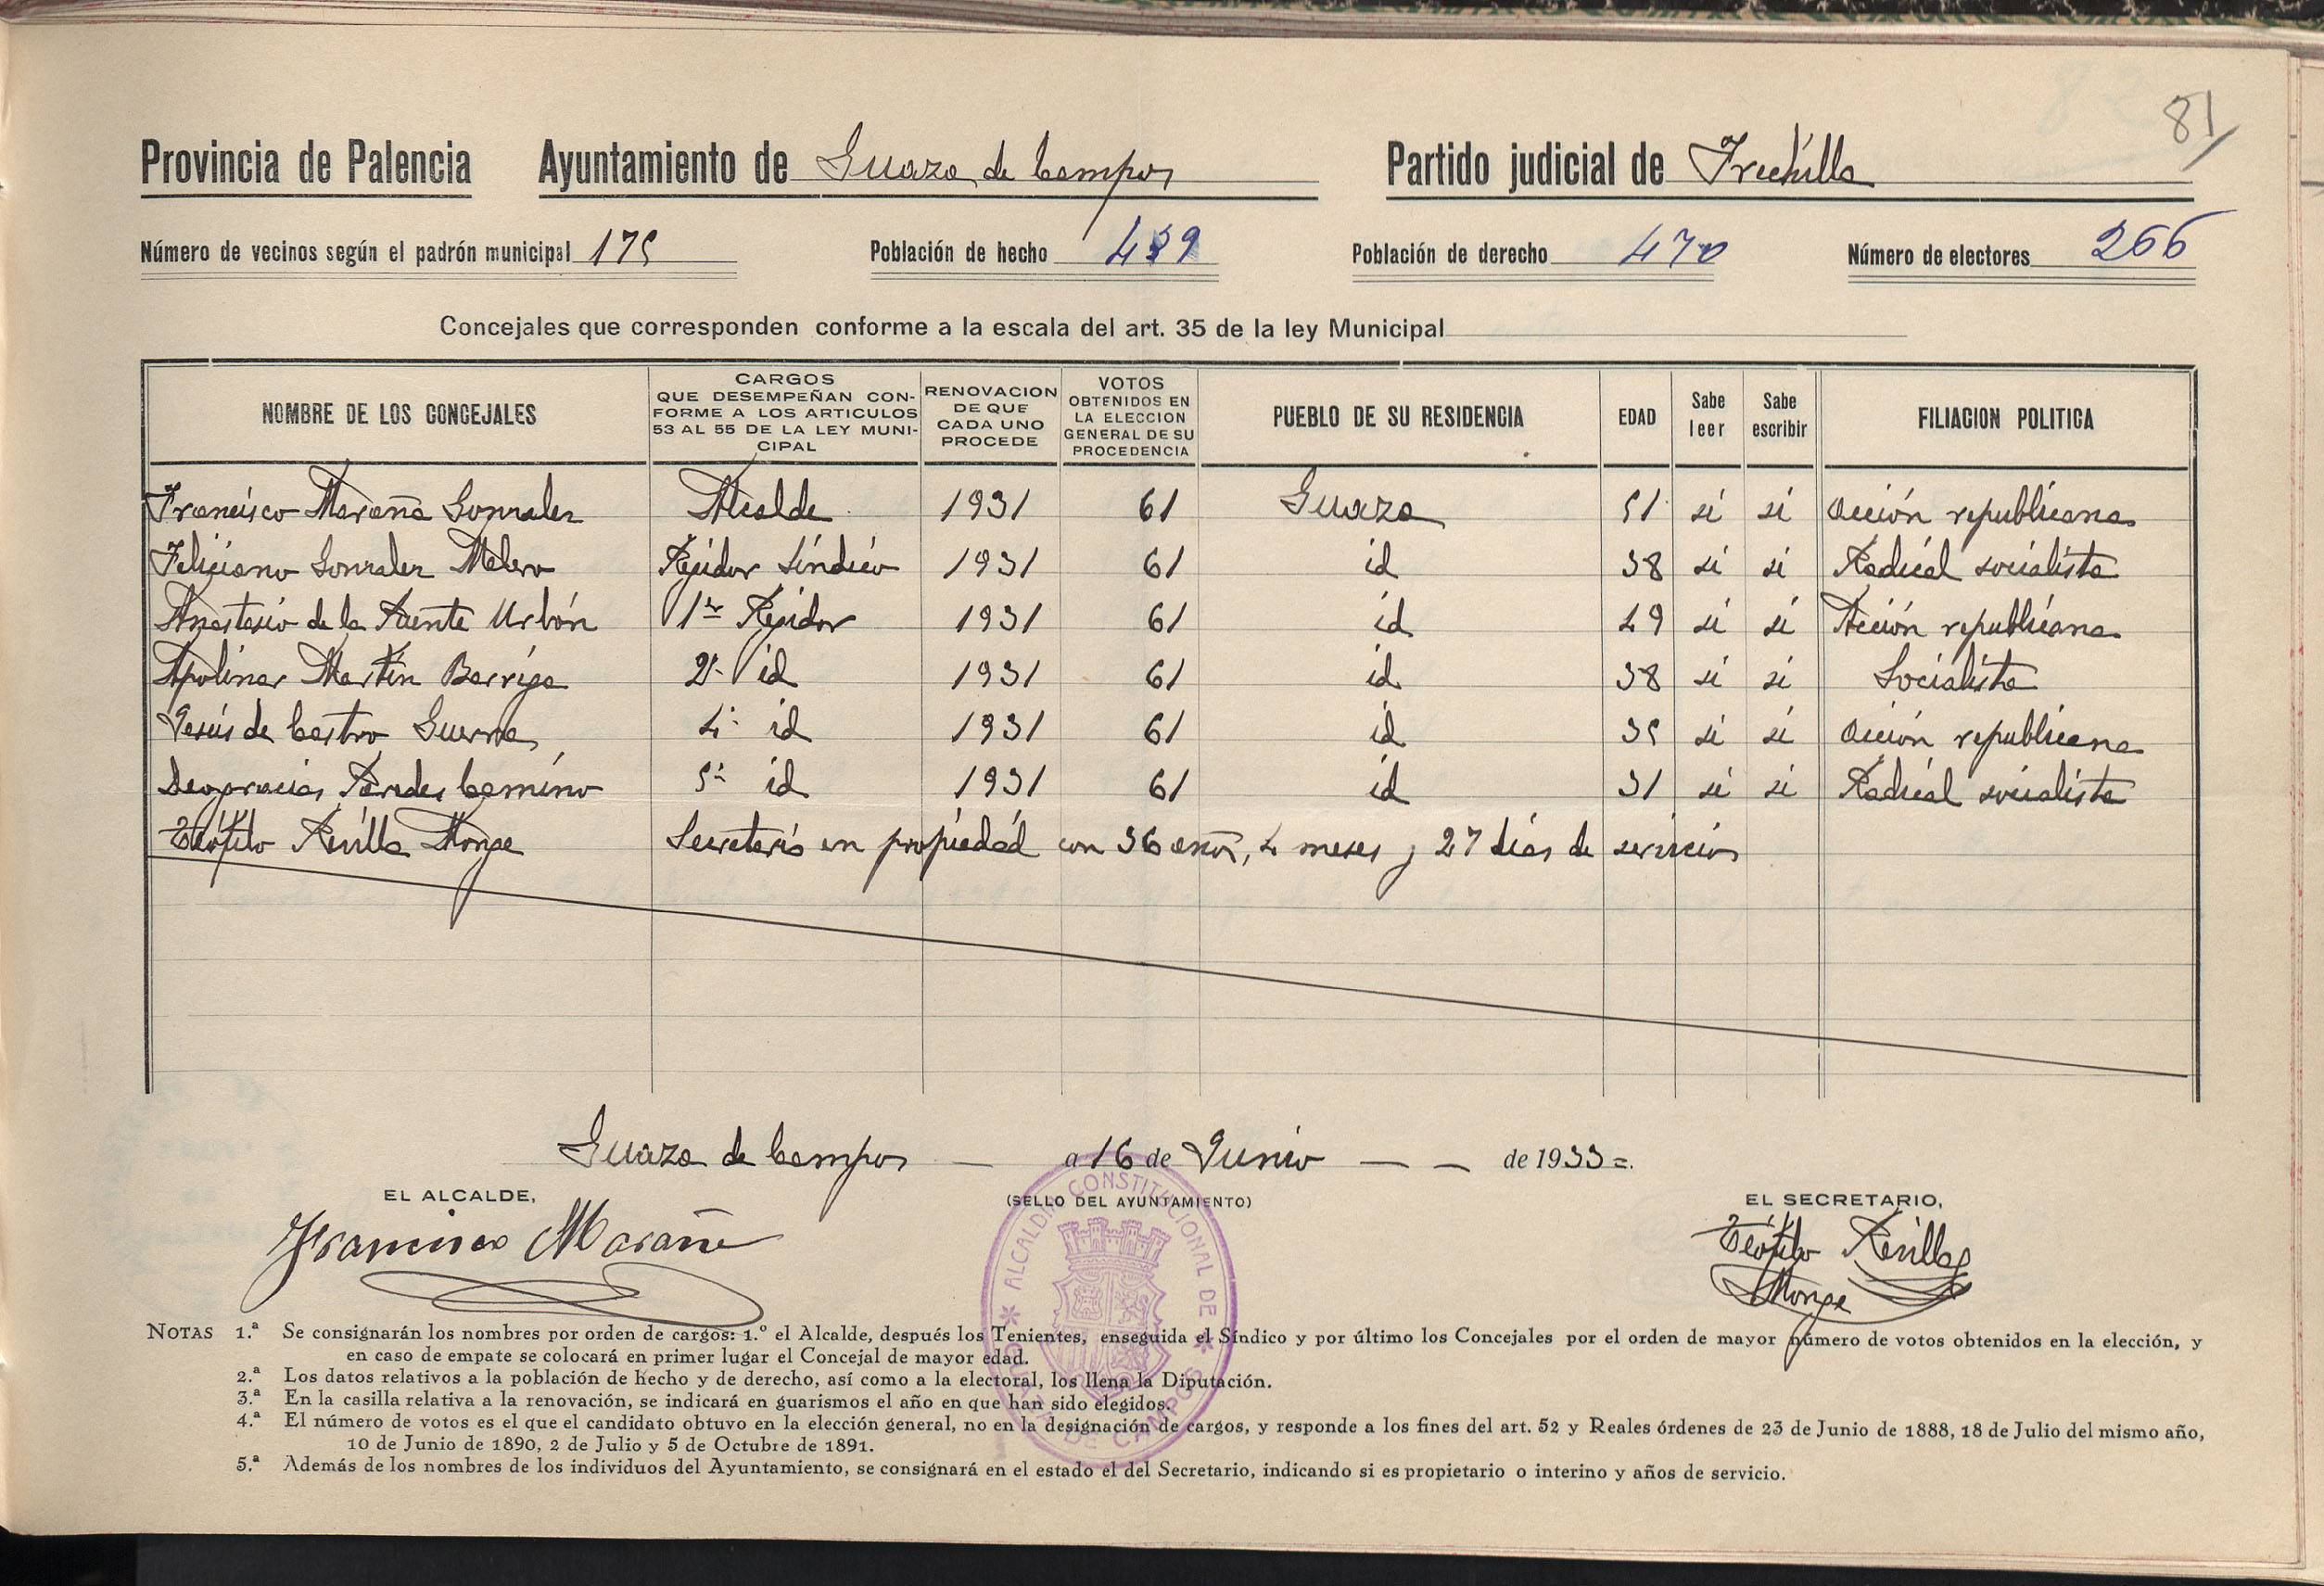 81
Provincia de Palencia Ayuntamiento de Guaza de Campos Partido judicial de Frechilla
Número de vecinos según el padrón municipal 175 Población de hecho 439 Población de derecho 470 Número de electores 266
Concejales que corresponden conforme a la escala del art. 35 de la ley Municipal
NOMBRE DE LOS CONCEJALES
CARGOS
QUE DESEMPEÑAN CON-
FORME A LOS ARTICULOS
53 AL 55 DE LA LEY MUNI-
CIPAL
RENOVACION
DE QUE
CADA UNO
PROCEDE
VOTOS
OBTENIDOS EN
LA ELECCION
GENERAL DE SU
PROCEDENCIA
PUEBLO DE SU RESIDENCIA
EDAD
Sabe
leer
Sabe
escribir
FILIACION POLITICA
Francisco Maraña Gonzalez Alcalde 1931 61 Guaza 51 si si Acción republicana
Feliciano Gonzalez Melero Regidor Síndico 1931 61 id 38 si si Radical socialista
Anastasio de la Fuente Urbón 1er Regidor 1931 61 id 49 si si Acción republicana
Apolinar Martín Barriga 2º id 1931 61 id 38 si si Socialista
Jesús de Castro Guerra 4º id 1931 61 id 35 si si Acción republicana
Deogracias Paredes Camino 5º id 1931 61 id 31 si si Radical socialista
Teófilo Revilla Monge Secretario en propiedad con 36 años, 4 meses y 27 días de servicios
Guaza de Campos a 16 de Junio de 1933=.
EL ALCALDE,
(SELLO DEL AYUNTAMIENTO)
EL SECRETARIO,
Francisco Maraña
Teófilo Revilla
Monge
ALCALDIA CONSTITUCIONAL DE
GUAZA DE CAMPOS
NOTAS 1.ª Se consignarán los nombres por orden de cargos: 1.º el Alcalde, después los Tenientes, enseguida el Síndico y por último los Concejales por el orden de mayor número de votos obtenidos en la elección, y
en caso de empate se colocará en primer lugar el Concejal de mayor edad.
2.ª Los datos relativos a la población de hecho y de derecho, así como a la electoral, los llena la Diputación.
3.ª En la casilla relativa a la renovación, se indicará en guarismos el año en que han sido elegidos.
4.ª El número de votos es el que el candidato obtuvo en la elección general, no en la designación de cargos, y responde a los fines del art. 52 y Reales órdenes de 23 de Junio de 1888, 18 de Julio del mismo año,
10 de Junio de 1890, 2 de Julio y 5 de Octubre de 1891.
5.ª Además de los nombres de los individuos del Ayuntamiento, se consignará en el estado el del Secretario, indicando si es propietario o interino y años de servicio.